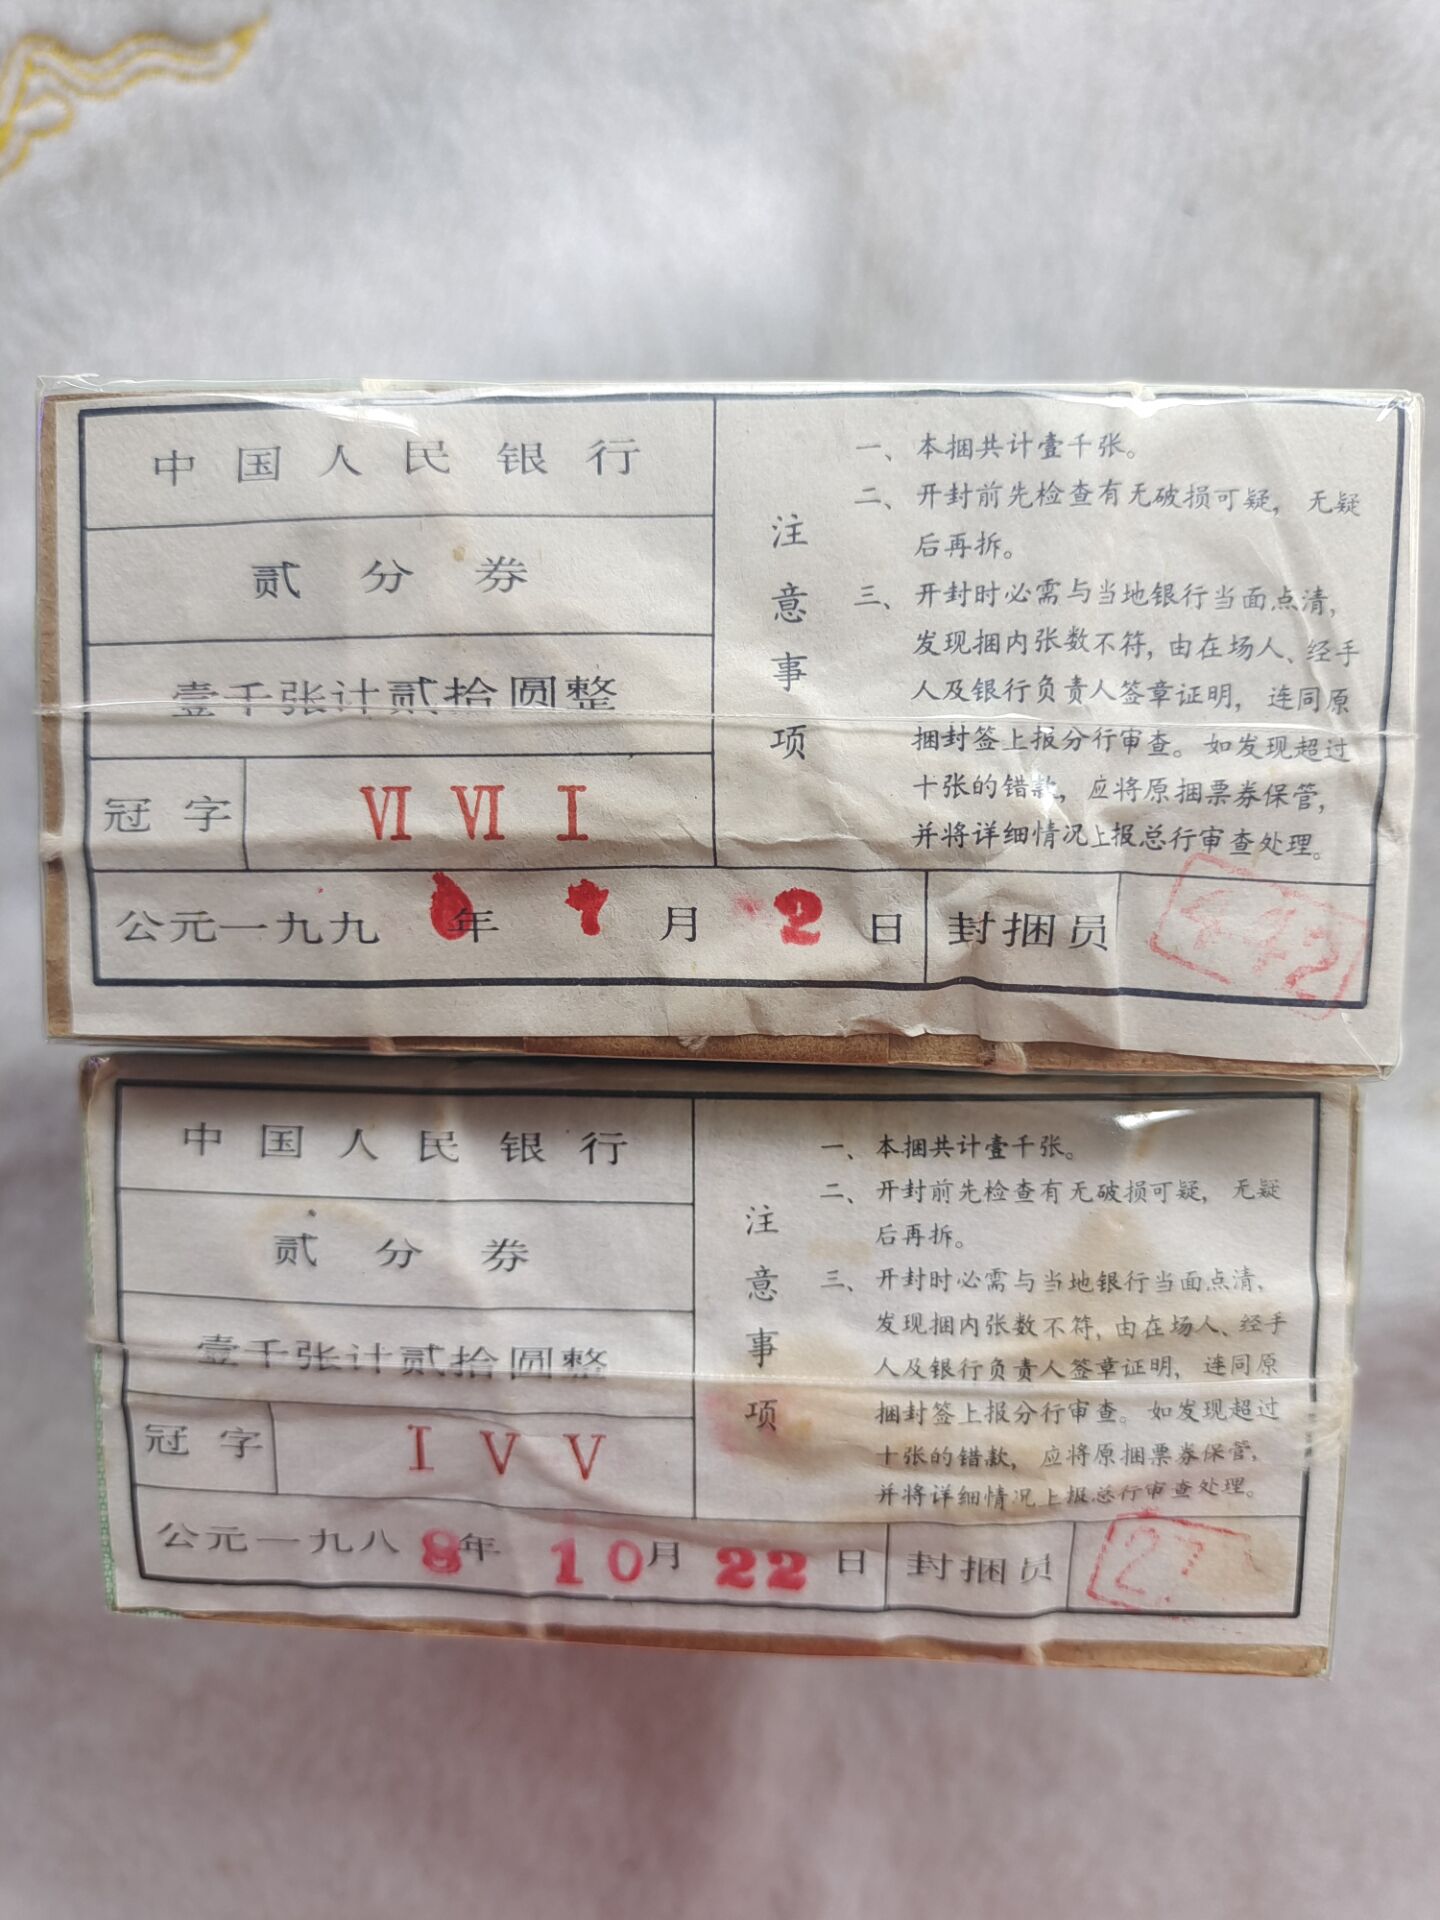 中国人民银行
贰分券
壹千张计贰拾圆整
冠字 Ⅵ Ⅵ Ⅰ
公元一九九0年 7月 2日 封捆员
注意事项
一、本捆共计壹千张。
二、开封前先检查有无破损可疑，无疑
后再拆。
三、开封时必需与当地银行当面点清，
发现捆内张数不符，由在场人、经手
人及银行负责人签章证明，连同原
捆封签上报分行审查。如发现超过
十张的错款，应将原捆票券保管，
并将详细情况上报总行审查处理。
中国人民银行
贰分券
壹千张计贰拾圆整
冠字 Ⅰ Ⅴ Ⅴ
公元一九八8年 10月 22日 封捆员 27
注意事项
一、本捆共计壹千张。
二、开封前先检查有无破损可疑，无疑
后再拆。
三、开封时必需与当地银行当面点清，
发现捆内张数不符，由在场人、经手
人及银行负责人签章证明，连同原
捆封签上报分行审查。如发现超过
十张的错款，应将原捆票券保管，
并将详细情况上报总行审查处理。